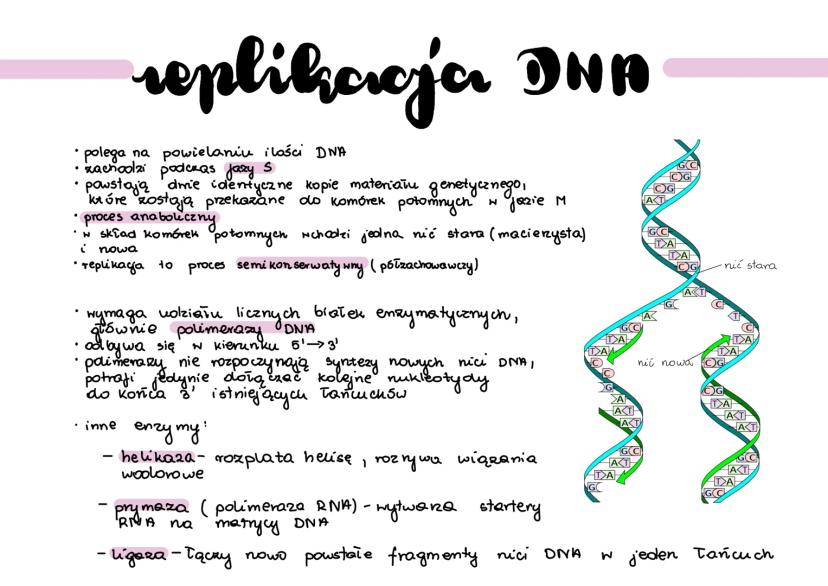 replikacja DNA
• polega na powielaniu ilości DNA
• zachodzi podczas fazy S
• powstają dwie identyczne kopie materiału genetycznego,
które zostają przekazane do komórek potomnych w fazie M
• proces anaboliczny
• w skład komórek potomnych wchodzi jedna nić stara (macierzysta)
i nowa
• replikacja to proces semikonserwatywny (półzachowawczy)
• wymaga udziału licznych białek enzymatycznych,
głównie polimerazy DNA
• odbywa się w kierunku 5'→3'
• polimerazy nie rozpoczynają syntezy nowych nici DNA,
potrafi jedynie dołączać kolejne nukleotydy
do końca 3' istniejących łańcuchów
• inne enzymy:
– helikaza – rozplata helisę, rozrywa wiązania
wodorowe
– prymaza (polimeraza RNA) – wytwarza startery
RNA na matrycy DNA
– ligaza – łączy nowo powstałe fragmenty nici DNA w jeden łańcuch
nić stara
nić nowa